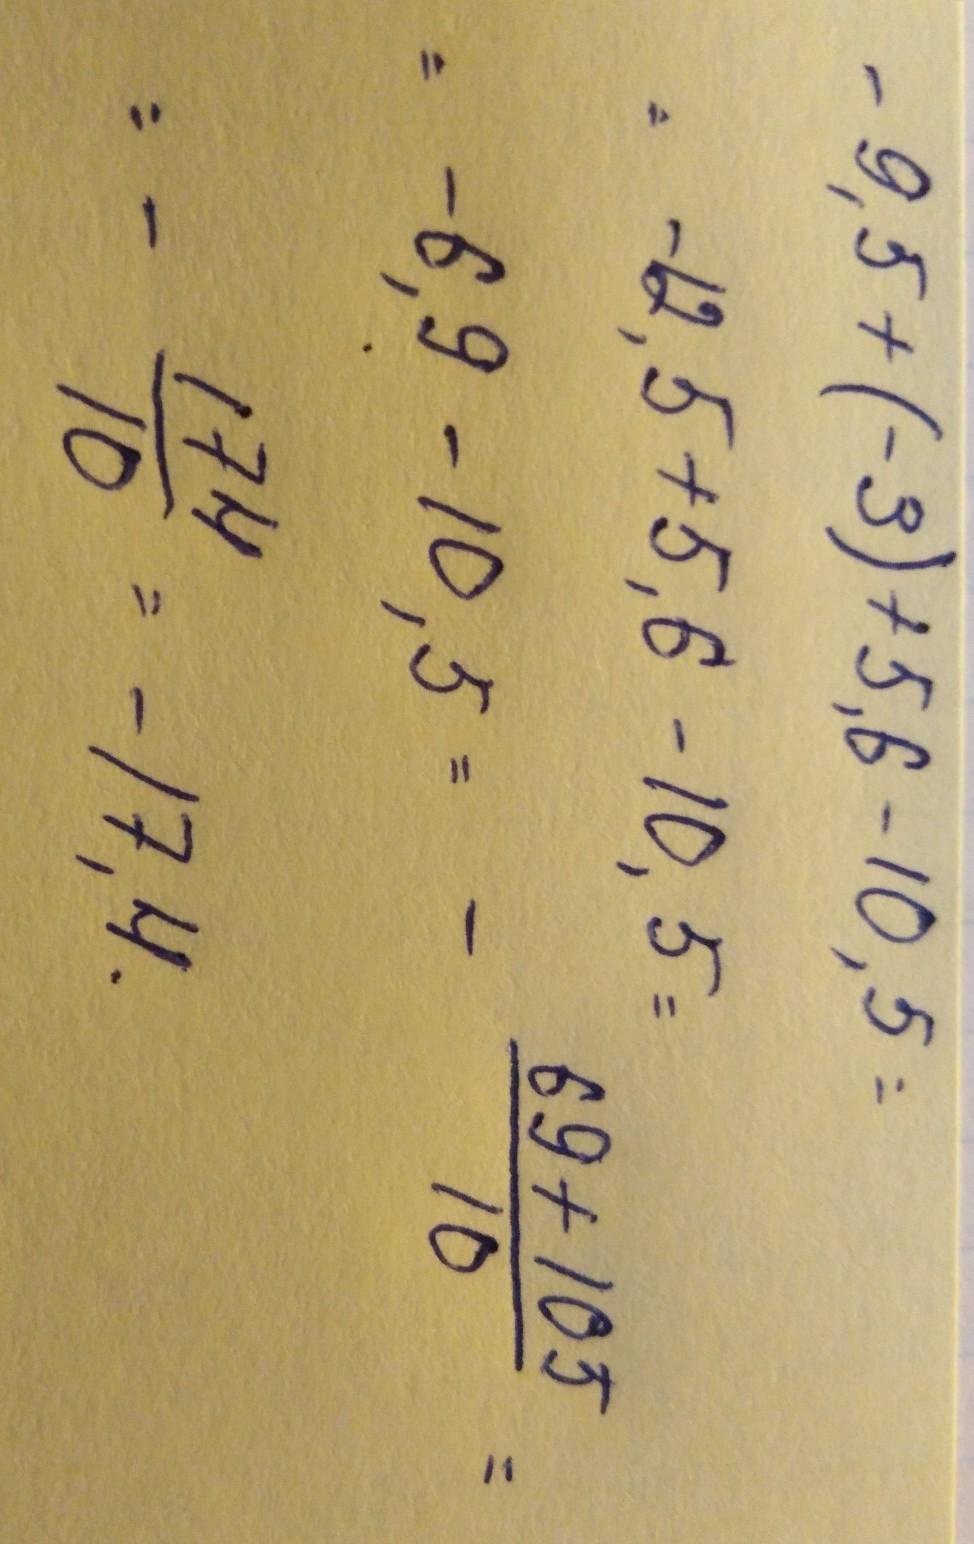 - 9,5 + (-3) + 5,6 - 10,5 =
= -12,5 + 5,6 - 10,5 =
= -6,9 - 10,5 = - \frac{69 + 105}{10} =
= - \frac{174}{10} = -17,4.